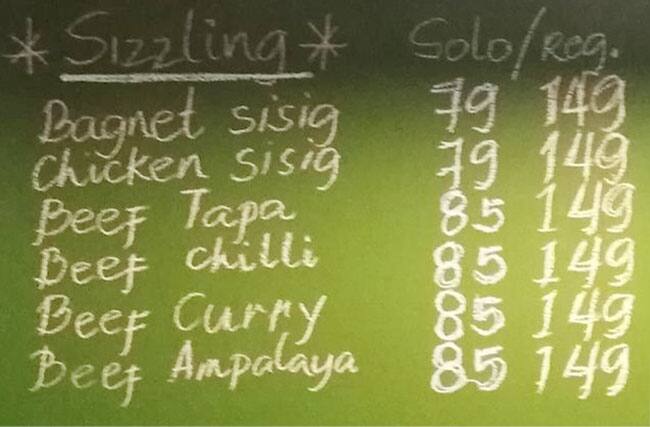 * Sizzling * Solo/reg.
Bagnet sisig 79 149
Chicken sisig 79 149
Beef Tapa 85 149
Beef chilli 85 149
Beef Curry 85 149
Beef Ampalaya 85 149